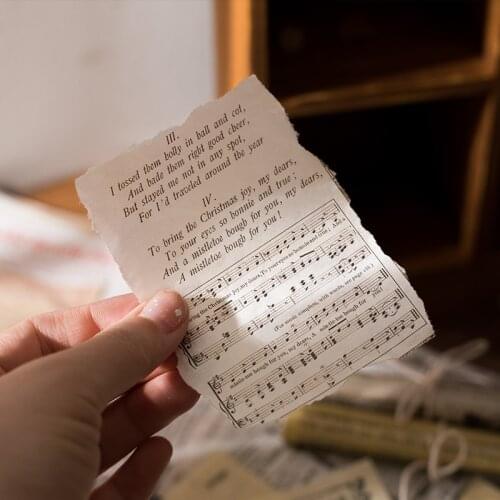 III.
I tossed them holly in ball and cot,
And bade them right good cheer,
But stayed me not in any spot,
For I'd traveled around the year
IV.
To bring the Christmas joy, my dears,
To your eyes so bonnie and true;
And a mistletoe bough for you, my dears,
A mistletoe bough for you!
ing the Christmas joy, my dears, To your eyes so bonnie and true; And a
(For music complete, with words, see page 281.)
mistletoe bough for you, my dears, A mistletoe bough for